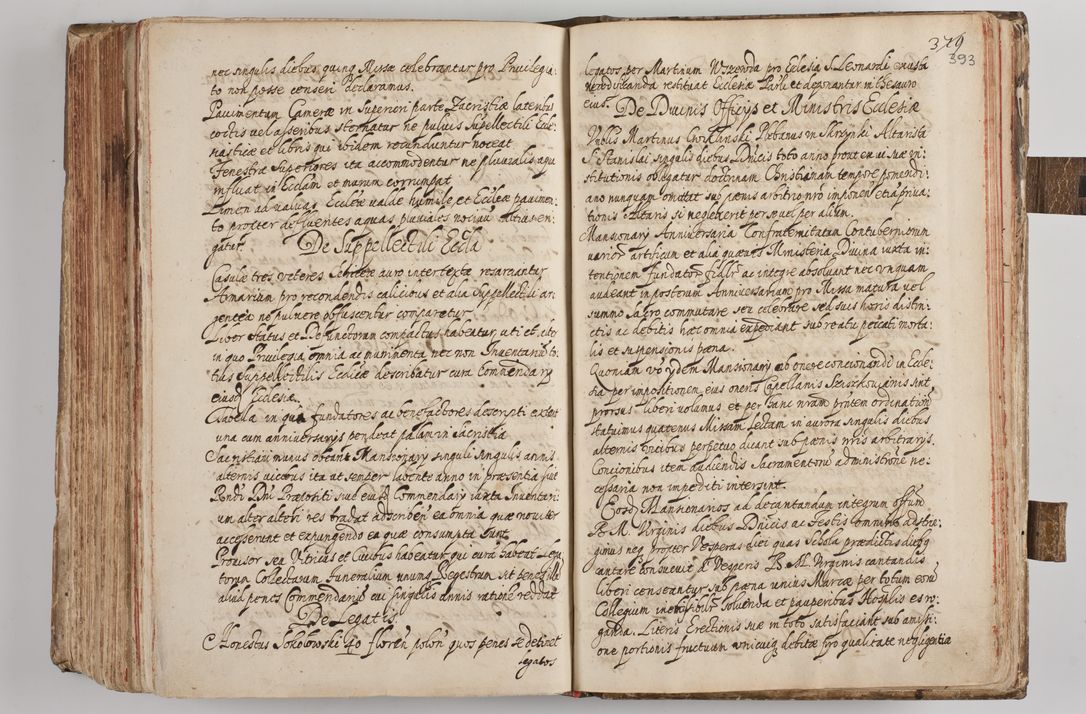 nec singulis diebus quinq Missæ celebrantur pro Privilegia:
to non posse censeri declaramus.
Pavimentum Cameræ in superiori parte Zacristiæ lateribus
coctis vel asseribus sternatur ne pulvis supellectili Eccle:
siasticæ et libris qui ibidem reconduntur noceat.
Fenestræ superiores ita accommodentur ne pluvialis aqua
influat in Ecclam et murum corrumpat
Limen ad valvas Eccleæ valde humile, et Eccleæ pavimen:
to propter defluentes aquas pluviales nocivum altius eri:
gatur.
De Suppellectili Eccla
Casulæ tres veteres sericeæ auro intertextæ resarciantur
Armarium pro recondendis calicibus et alia Suppellectili ar:
gentea ne pulvere obfuscentur comparetur.
Liber status et Defunctorum compactus habeatur, uti et alter
in quo Privilegia omnia ac munimenta nec non Inventarium to:
tius suppellectilis Eccleæ describatur cura Commendarij
eiusd Ecclesiæ.
Tabella in qua fundatores ac benefactores descripti extent
una cum anniversarijs pendeat palam in sacristia
Sacristiani munus obeant Mansionarij singuli singulis annis
alternis vicibus ita ut semper labente anno in præsentia sive
Rndi Dni Præpositi sive eiusd Commendarij iuxta Inventari:
um alter alteri res tradat adscriben ea omnia quæ noviter
accesserunt et expungendo ea quæ consumpta sunt
Provisor seu Vitricus ex Civibus habeatur qui cura habeat Lega
torum Collectarum funeralium unum Regestrum sit penes illu
aliud penes Commendariu cui singulis annis ratione reddat
De Legatis.
Honestus Sokolowski 40 floren polon quos penes se detinet
legatos
379
393
legatos per Martinum Wszenda pro Ecclesia S. Leonardi exusta
reædificanda restituat Ecclesiæ Parli et deponantur in thesauro
eius.
De Divinis Officijs et Ministris Ecclesiæ
Vnblis Martinus Chocilinski Plebanus in Skrzynki Altarista
S. Stanislai singulis diebus Dnicis toto anno prout ex vi suæ in:
stitutionis obligatur doctrinam Christianam tempore pomeridi:
ano nunquam omittat sub pænis arbitrio nro imponen etia priva:
tionis Altaris si neglexerit per se vel per alium.
Mansionarij Anniversaria Confraternitatum Contuberniorum
variorum artificum et alia quævis Ministeria Divina iuxta in:
tentionem fundator fidlr ac integre absolvant nec unquam
audeant in posterum Anniversarium pro Missa matura vel
summo Sacro commutare seu celebrare sed suis horis distin:
ctis ac debitis hæc omnia expediant sub reatu peccati morta:
lis et suspensionis pæna.
Quoniam vo ijdem Mansionarij ab onere concionandi in Eccle:
sia per impositionem eius oneris Capellanis Sziszkovianis sint
prorsus liberi volumus et per hanc nram præntem ordinationem
statuimus quatenus Missam Lectam in aurora singulis diebus
alternis vicibus perpetuo dicant sub pænis nris arbitrarijs.
Concionibus item audiendis Sacramentorum administrone ne:
cessaria non impediti intersint.
Eosd Mansionarios ad decantandum integrum offium
B. M. Virginis diebus Dnicis ac Festis omnino adstrin:
gimus neq propter Vesperas diei quas Schola prædictis diebq
cantare consuevit a Vesperis B. M. Virginis cantandis
liberi censeantur sub pæna unius Marcæ per totum eoru
Collegium solvenda et pauperibus Hospilis ero:
ganda. Literis Erectionis suæ in toto satisfaciant sub amissi:
one portionis fructuum unicuiq debitæ pro qualitate negligentiæ